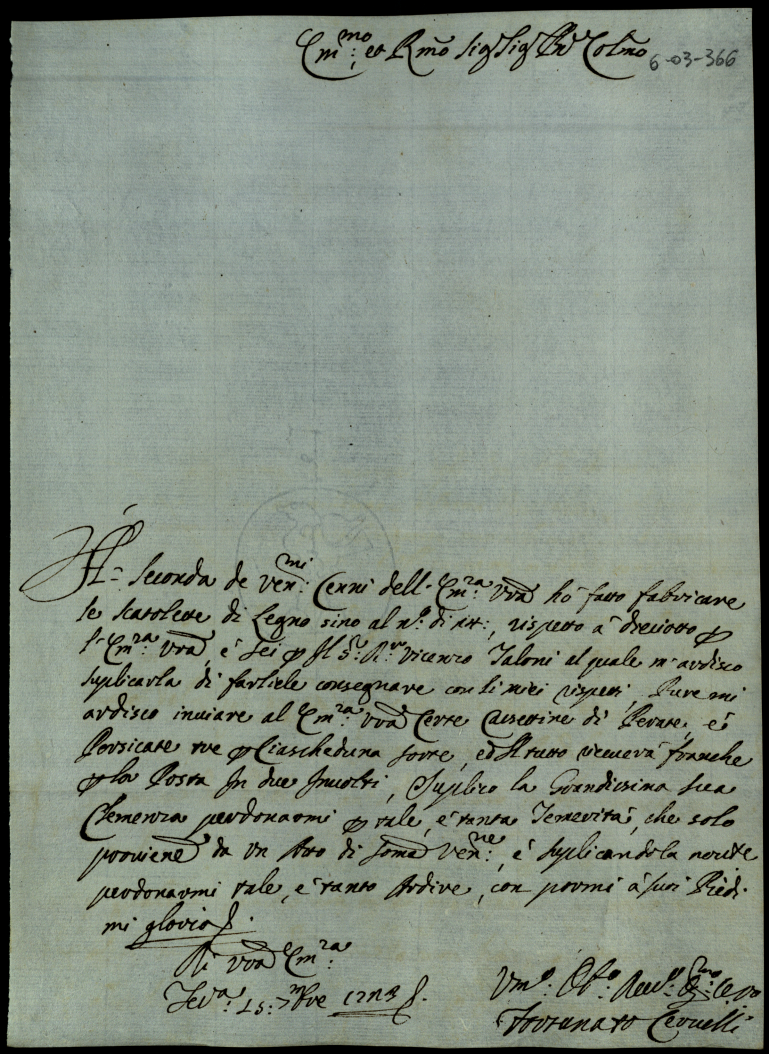 Em:mo et Rmo Sig Sig Prõ Col:mo
6-03-366
A Seconda de ven:mi Cenni dell' Em:ra Vra hò fatto fabricare
le scatolette di Legno sino al n.o di, rispetto à dieciotto p
l' Em:ra Vra, è sei p Il Vicenzo Taloni al quale m'ardisco
suplicarla di farliele consegnare con li miei rispetti, Pure mi
ardisco inviare al Em:ra Vra Certe Cassettine di Perate, è
Persicate tre p Ciascheduna sorte, ed Il tutto riceverà franche
p la Posta In due Involti, Suplico la Grandissima sua
Clemenza perdonarmi p tale, è tanta Temerità, che solo
proviene da un Atto di soma ven:ne, è suplicandola
perdonarmi tale, è tanto Ardire, con pormi à suoi Piedi
mi glorio
Di Vra Em:ra
15: 7mbre
Um.o
Fortunato Cervelli